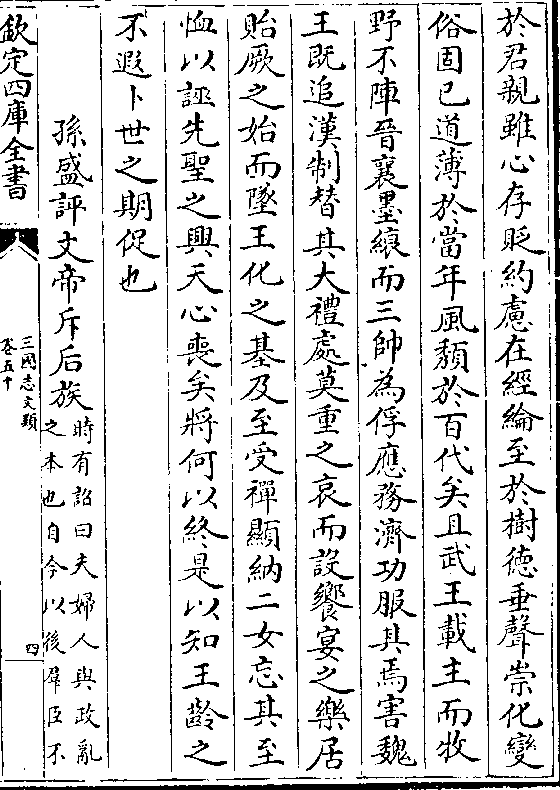 於君親雖心存貶約慮在經綸至於樹德垂聲崇化變
俗固已道薄於當年風頽於百代矣且武王載主而牧
野不陣晉襄墨縗而三帥為俘應務濟功服其焉害魏
王既追漢制替其大禮處莫重之哀而設饗宴之樂居
貽厥之始而墜王化之基及至受禪顯納二女忘其至
恤以誣先聖之典天心喪矣將何以終是以知王齡之
不遐卜世之期促也
孫盛評文帝斥后族
時有詔曰夫婦人與政亂
之本也自今以後羣臣不
欽定四庫全書
三國志文類
卷五十
四